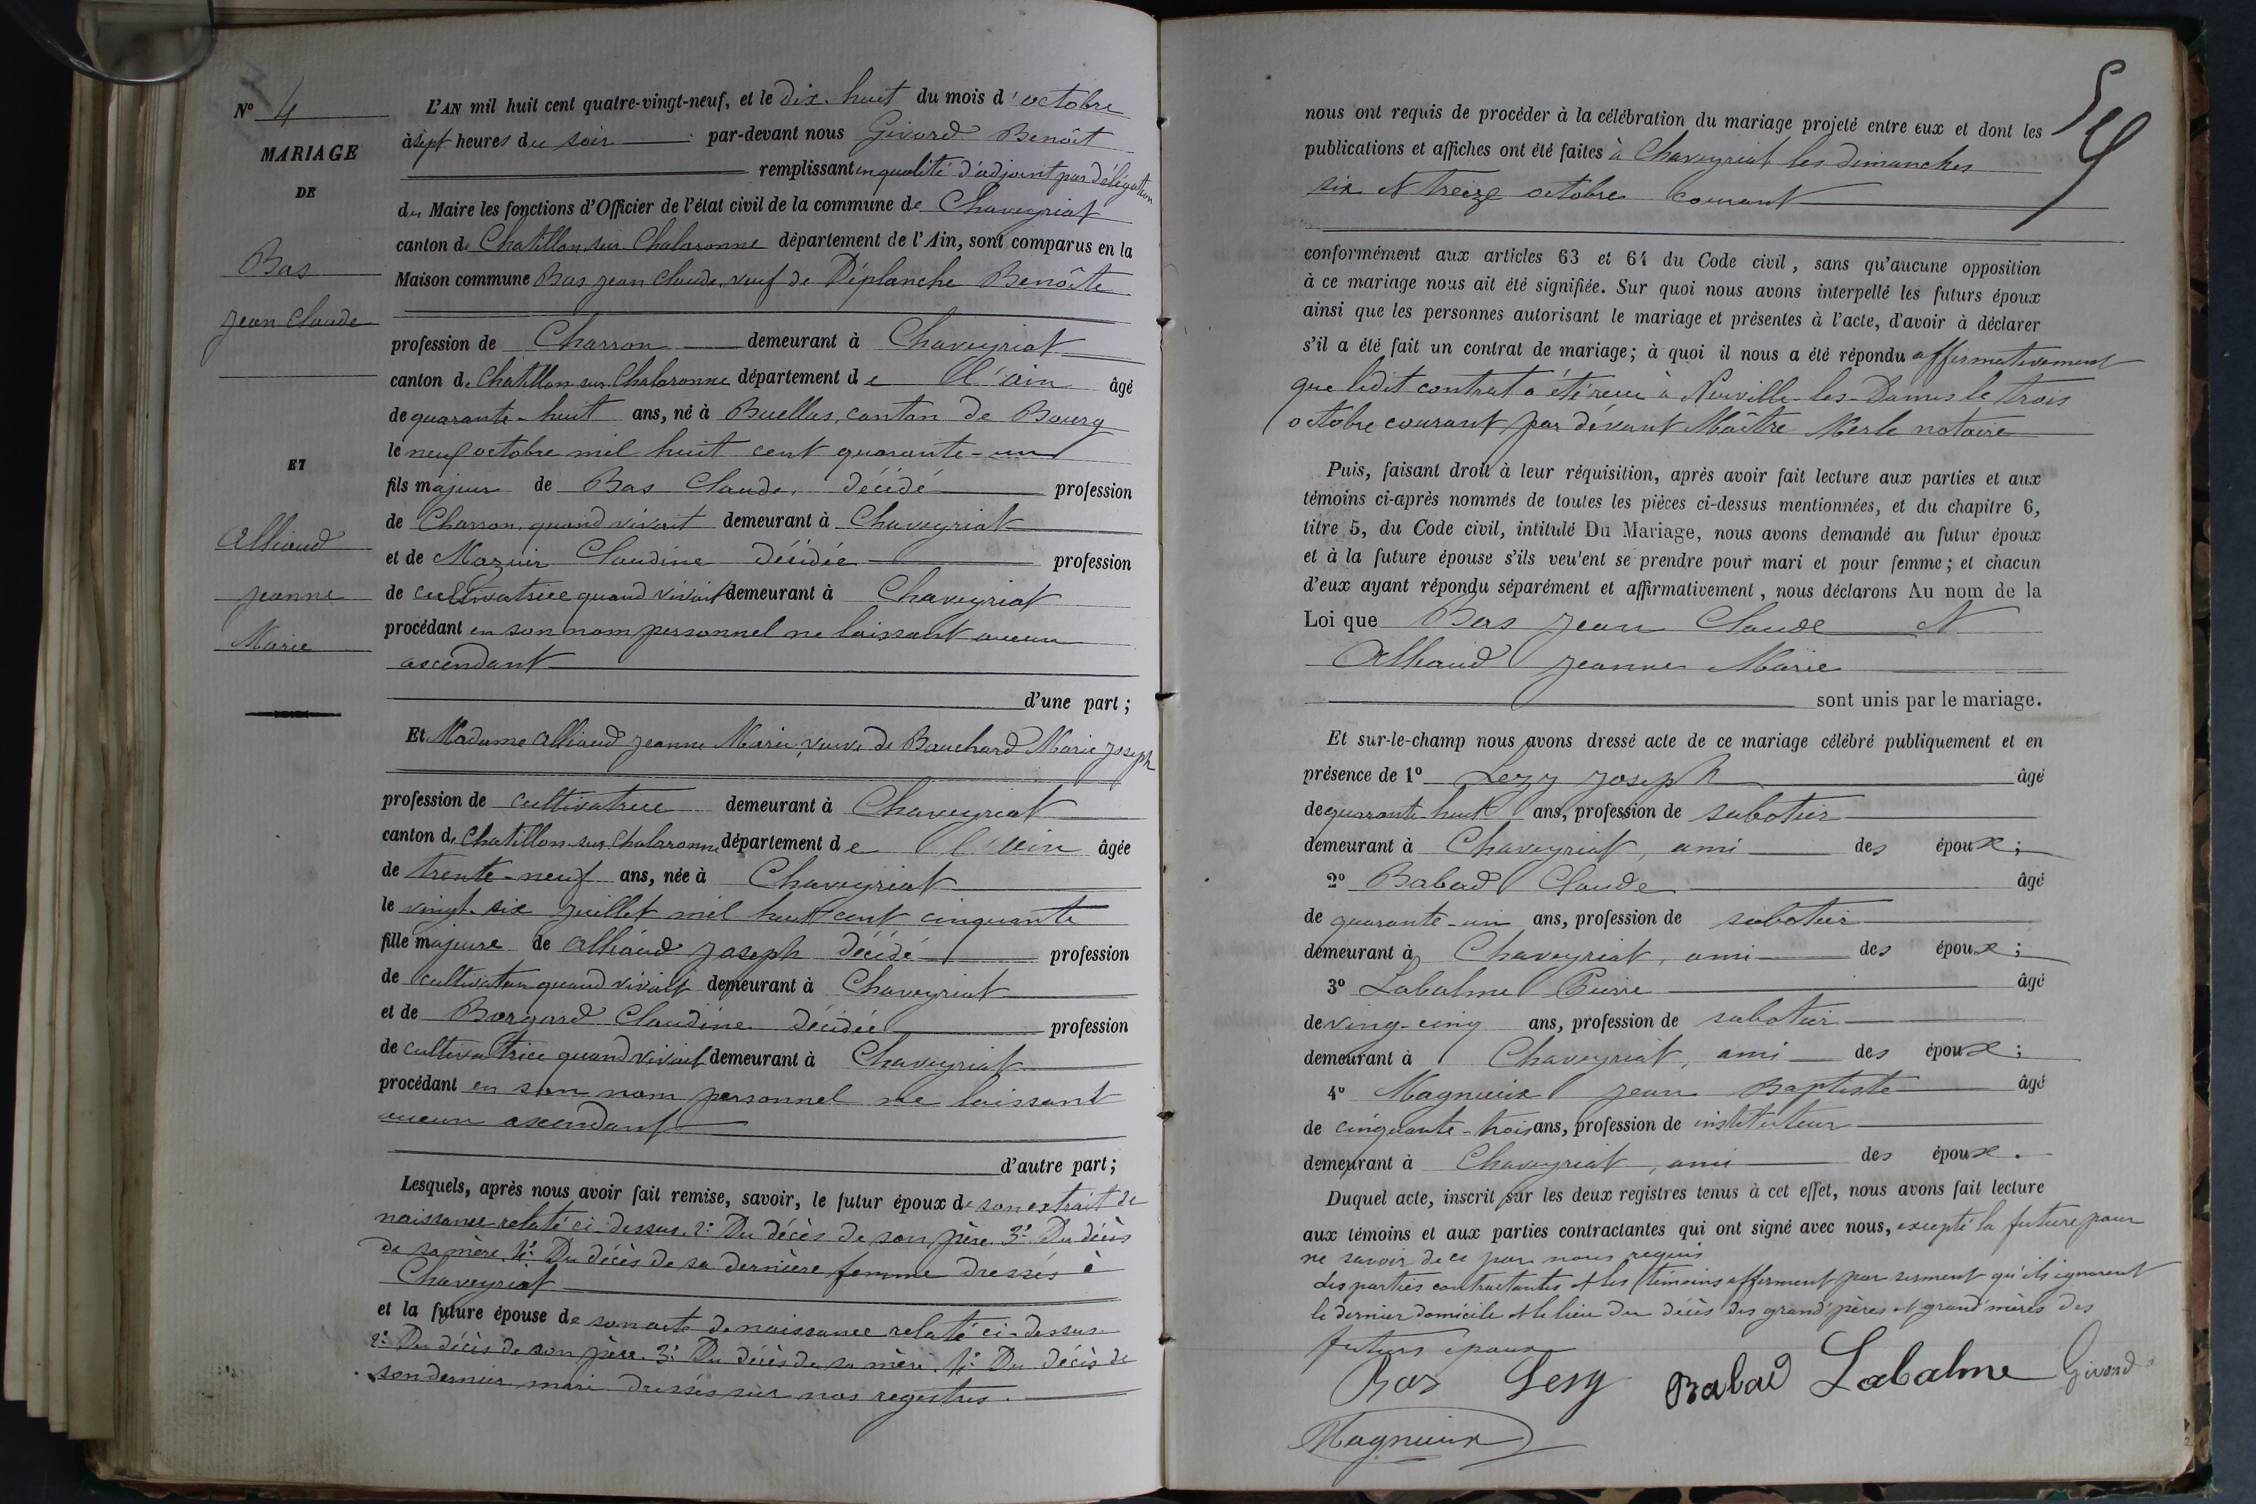 Nº 4
MARIAGE
DE
Bas
Jean Claude
ET
Alliaud
Jeanne
Marie
L'AN mil huit cent quatre-vingt-neuf, et le dix-huit du mois d'octobre
à sept heures du soir par-devant nous Girard Benoît
remplissant en qualité d'adjoint par délégation
du Maire les fonctions d'Officier de l'état civil de la commune de Chaveyriat
canton de Chatillon sur Chalaronne département de l'Ain, sont comparus en la
Maison commune Bas Jean Claude, veuf de Déplanche Benoîte
profession de Charron demeurant à Chaveyriat
canton de Chatillon sur Chalaronne département de l'ain âgé
de quarante-huit ans, né à Buellas, canton de Bourg
le neuf octobre mil huit cent quarante-un
fils majeur de Bas Claude, décédé profession
de Charron quand vivait demeurant à Chaveyriat
et de Mazuir Claudine décédée profession
de cultivatrice quand vivait demeurant à Chaveyriat
procédant en son nom personnel ne laissant aucun
ascendant
d'une part ;
Et Madame Alliaud Jeanne Marie, veuve de Bouchard Marie Joseph
profession de cultivatrice demeurant à Chaveyriat
canton de Chatillon-sur-Chalaronne département de l'ain âgée
de trente-neuf ans, née à Chaveyriat
le vingt-six juillet mil huit cent cinquante
fille majeure de Alliaud Joseph décédé profession
de cultivateur quand vivait demeurant à Chaveyriat
et de Borgard Claudine décédée profession
de cultivatrice quand vivait demeurant à Chaveyriat
procédant en son nom personnel ne laissant
aucun ascendant
d'autre part ;
Lesquels, après nous avoir fait remise, savoir, le futur époux de son extrait de
naissance relaté ci-dessus. 2º Du décès de son père. 3º Du décès
de sa mère. 4º Du décès de sa dernière femme dressés à
Chaveyriat
et la future épouse de son acte de naissance relaté ci-dessus.
2º Du décès de son père. 3º Du décès de sa mère. 4º Du décès de
son dernier mari dressés sur nos registres.
54
nous ont requis de procéder à la célébration du mariage projeté entre eux et dont les
publications et affiches ont été faites à Chaveyriat les dimanches
six et treize octobre courant
conformément aux articles 63 et 64 du Code civil, sans qu'aucune opposition
à ce mariage nous ait été signifiée. Sur quoi nous avons interpellé les futurs époux
ainsi que les personnes autorisant le mariage et présentes à l'acte, d'avoir à déclarer
s'il a été fait un contrat de mariage ; à quoi il nous a été répondu affirmativement
que ledit contrat a été reçu à Neuville-les-Dames le trois
octobre courant par dévant Maître Merle notaire
Puis, faisant droit à leur réquisition, après avoir fait lecture aux parties et aux
témoins ci-après nommés de toutes les pièces ci-dessus mentionnées, et du chapitre 6,
titre 5, du Code civil, intitulé Du Mariage, nous avons demandé au futur époux
et à la future épouse s'ils veu'ent se prendre pour mari et pour femme ; et chacun
d'eux ayant répondu séparément et affirmativement, nous déclarons Au nom de la
Loi que Bas Jean Claude et
Alliaud Jeanne Marie
sont unis par le mariage.
Et sur-le-champ nous avons dressé acte de ce mariage célébré publiquement et en
présence de 1º Lezy Joseph âgé
de quarante-huit ans, profession de sabotier
demeurant à Chaveyriat, ami des époux ;
2º Babad Claude âgé
de quarante-un ans, profession de sabotier
demeurant à Chaveyriat, ami des époux ;
3º Labalme Pierre âgé
de ving-cinq ans, profession de sabotier
demeurant à Chaveyriat, ami des époux ;
4º Magnieux Jean Baptiste âgé
de cinquante-trois ans, profession de instituteur
demeurant à Chaveyriat, ami des époux.
Duquel acte, inscrit sur les deux registres tenus à cet effet, nous avons fait lecture
aux témoins et aux parties contractantes qui ont signé avec nous, excepté la future pour
ne savoir de ce par nous requis
Les parties contractantes et les témoins afferment par serment qu'ils ignorent
le dernier domicile et le lieu du décès des grand'pères et grand'mères des
futurs époux
Bas Lesy Babad Labalme Girard
Magnieux